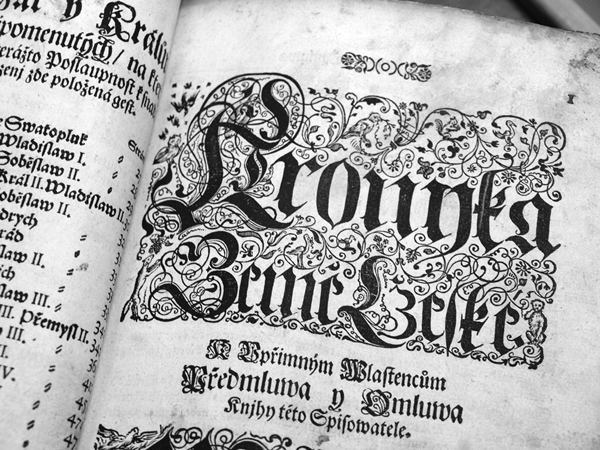 y Králi
pomenutých/ na kte
Poslaupnost
zde položená gest.
Swatopluk
Wladislaw I.
Soběslaw II.
Král II. Wladislaw II.
oběslaw II.
drych
rád
law II.
law III.
III. Přemysl II.
III.
IV.
1
Kronyka
Země České
K Vpřimným Wlastencům
Předmluwa y Omluwa
Knjhy této Spisowatele.